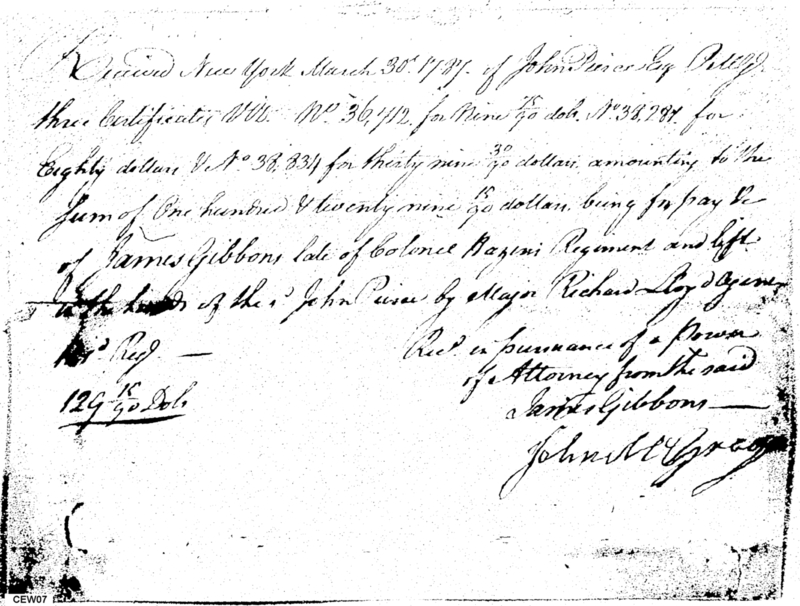 Received New York March 30th 1787. of John Pierce Esq P.M.G.
three Certificates Viz. No. 36,412. for Nine 75/90 dols. No. 38,287. for
Eighty dollars & No. 38.834 for thirty nine 30/90 dollars. amounting to the
Sum of One hundred & twenty nine 15/90 dollars. being for pay &c
of James Gibbons late of Colonel Hazens Regiment and left
in the hands of the sd. John Pierce by Major Richard Lloyd Agent
to sd. Regt —
Recd. in pursuance of a Power
of Attorney from the said
James Gibbons —
129 15/90 Dols
John
CEW07